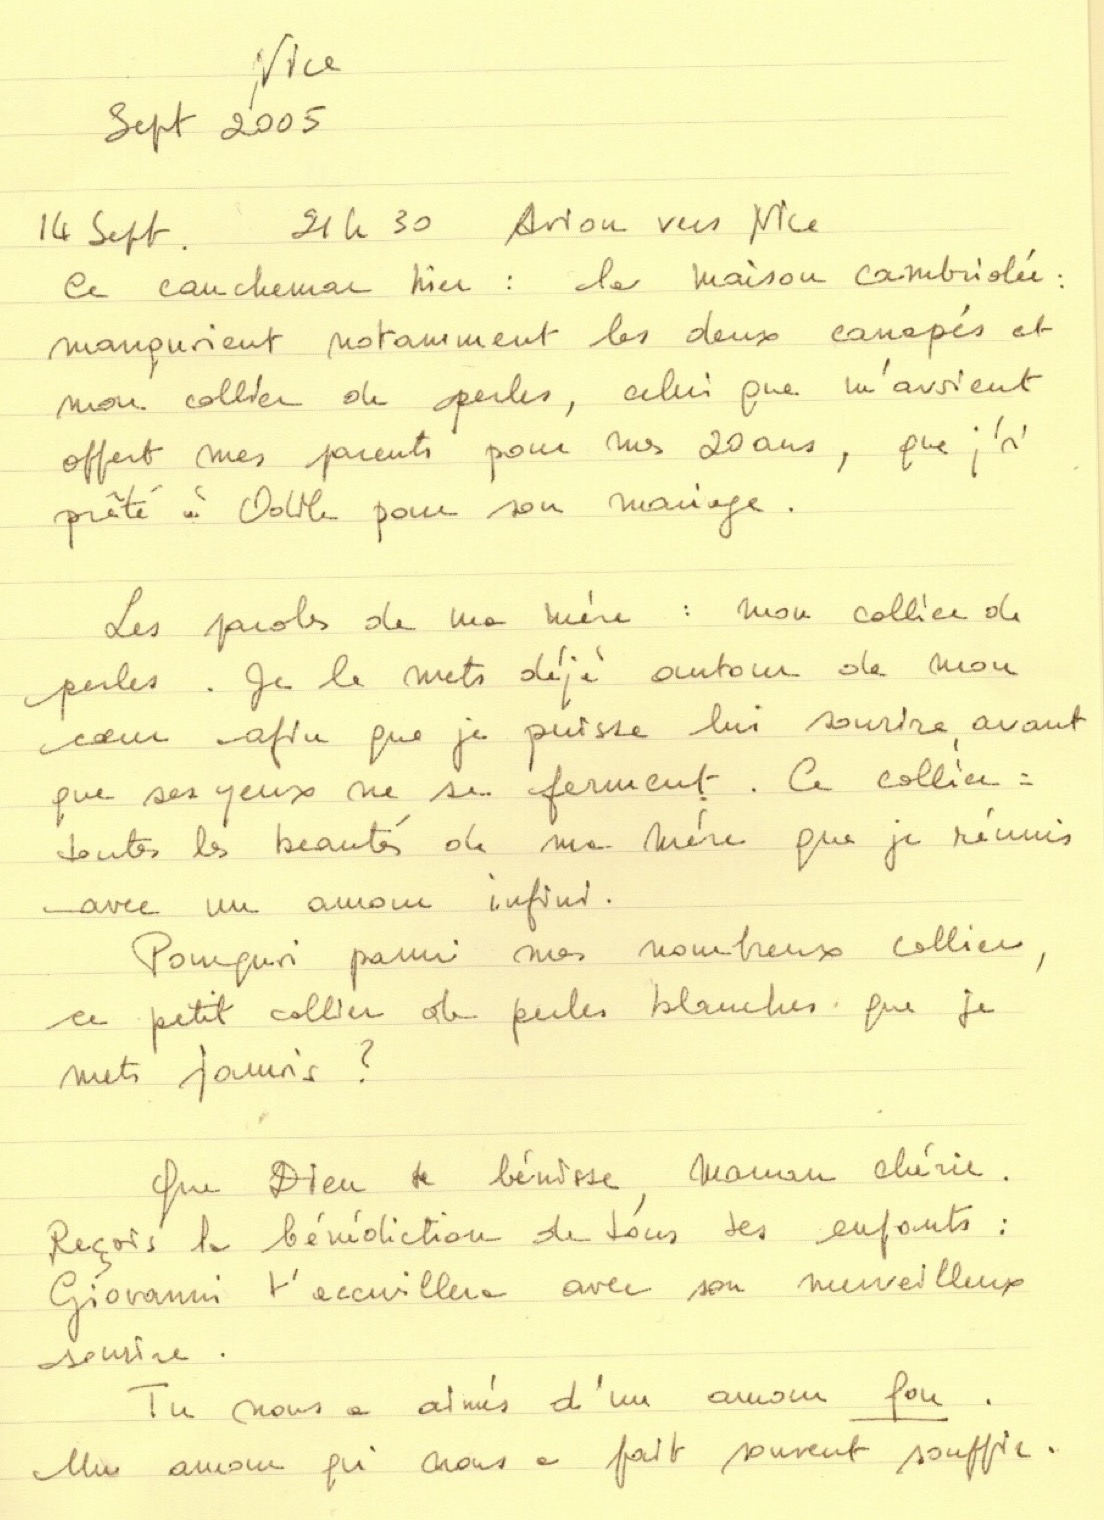 Nice
Sept 2005
14 Sept. 21h30 Avion vers Nice
Ce cauchemar hier : la maison cambriolée :
manquaient notamment les deux canapés et
mon collier de perles, celui que m'avaient
offert mes parents pour mes 20 ans, que j'ai
prêté à Odile pour son mariage.
Les paroles de ma mère : mon collier de
perles. Je le mets déjà autour de mon
cœur afin que je puisse lui sourire, avant
que ses yeux ne se ferment. Ce collier =
toutes les beautés de ma mère que je réunis
avec un amour infini.
Pourquoi parmi mes nombreux collier,
ce petit collier de perles blanches que je
mets jamais ?
Que Dieu te bénisse, Maman chérie.
Reçois la bénédiction de tous tes enfants :
Giovanni t'accueillera avec son merveilleux
sourire.
Tu nous a aimés d'un amour fou.
Un amour qui nous a fait souvent souffrir.